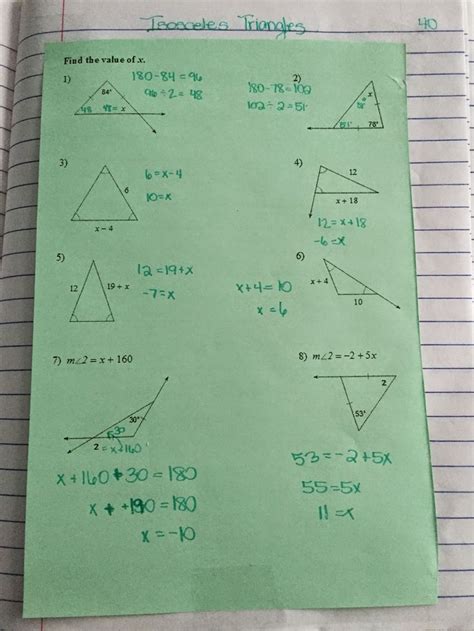 Isosceles Triangles
40
Find the value of x.
1)
84°
48
48 = x
180-84 = 96
96 ÷ 2 = 48
2)
180-78=102
102 ÷ 2 = 51
x
51
51
78°
3)
6
x − 4
6 = x-4
10=x
4)
12
x + 18
12 = x+18
-6 = x
5)
12
19 + x
12 = 19+x
-7 = x
6)
x + 4
10
x+4 = 10
x = 6
7) m∠2 = x + 160
30°
30
2 = x+160
x + 160 + 30 = 180
x + +190 = 180
x = -10
8) m∠2 = −2 + 5x
2
53°
53 = -2+5x
55 = 5x
11 = x